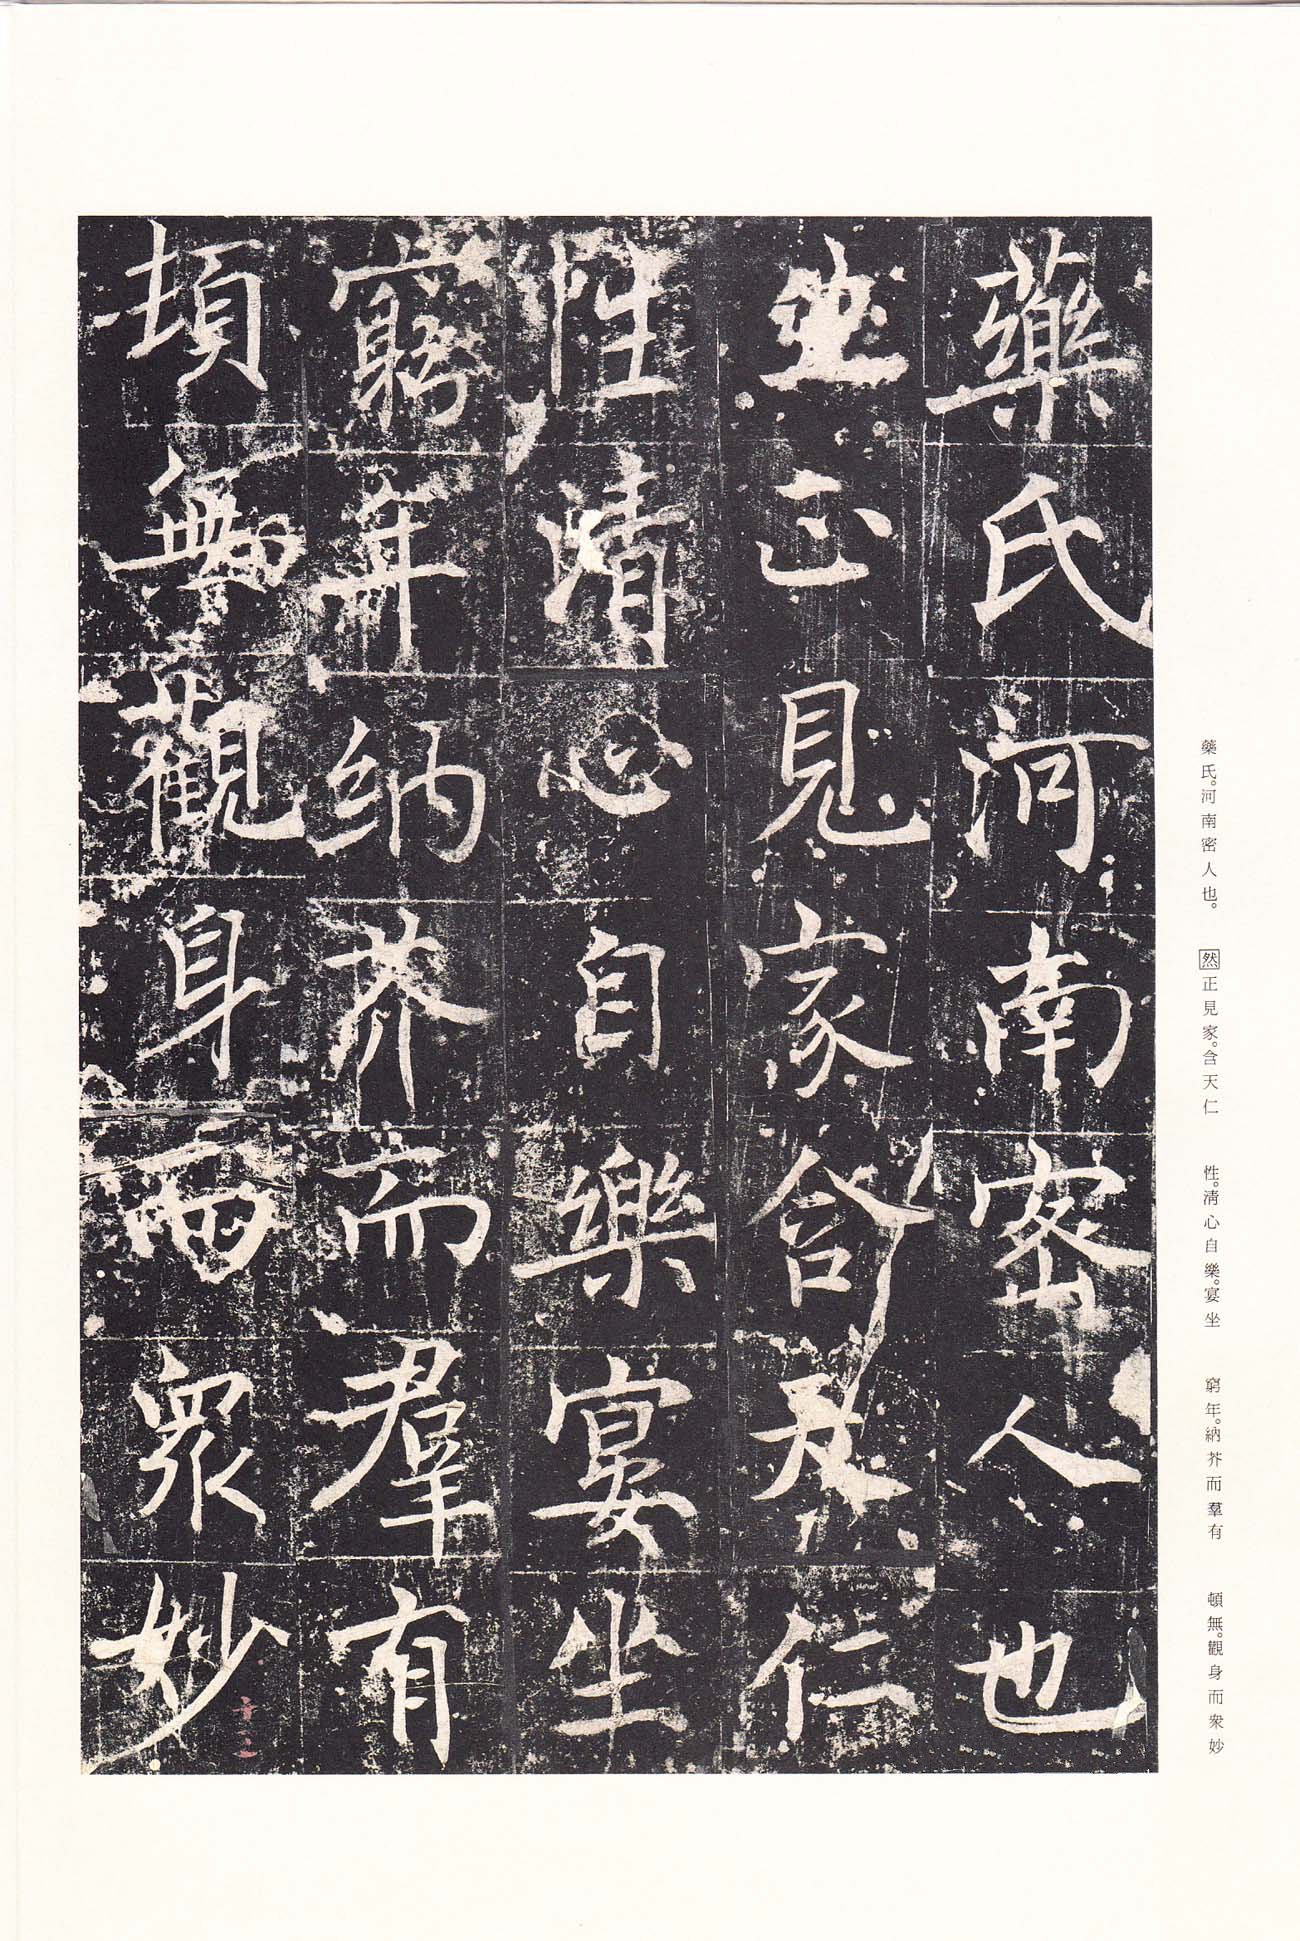 藥氏河南密人也
正見家含天仁
性清心自樂宴坐
窮年納芥而羣有
頓無觀身而衆妙
藥氏。河南密人也。 然正見家。含天仁 性。清心自樂。宴坐 窮年。納芥而羣有 頓無。觀身而衆妙